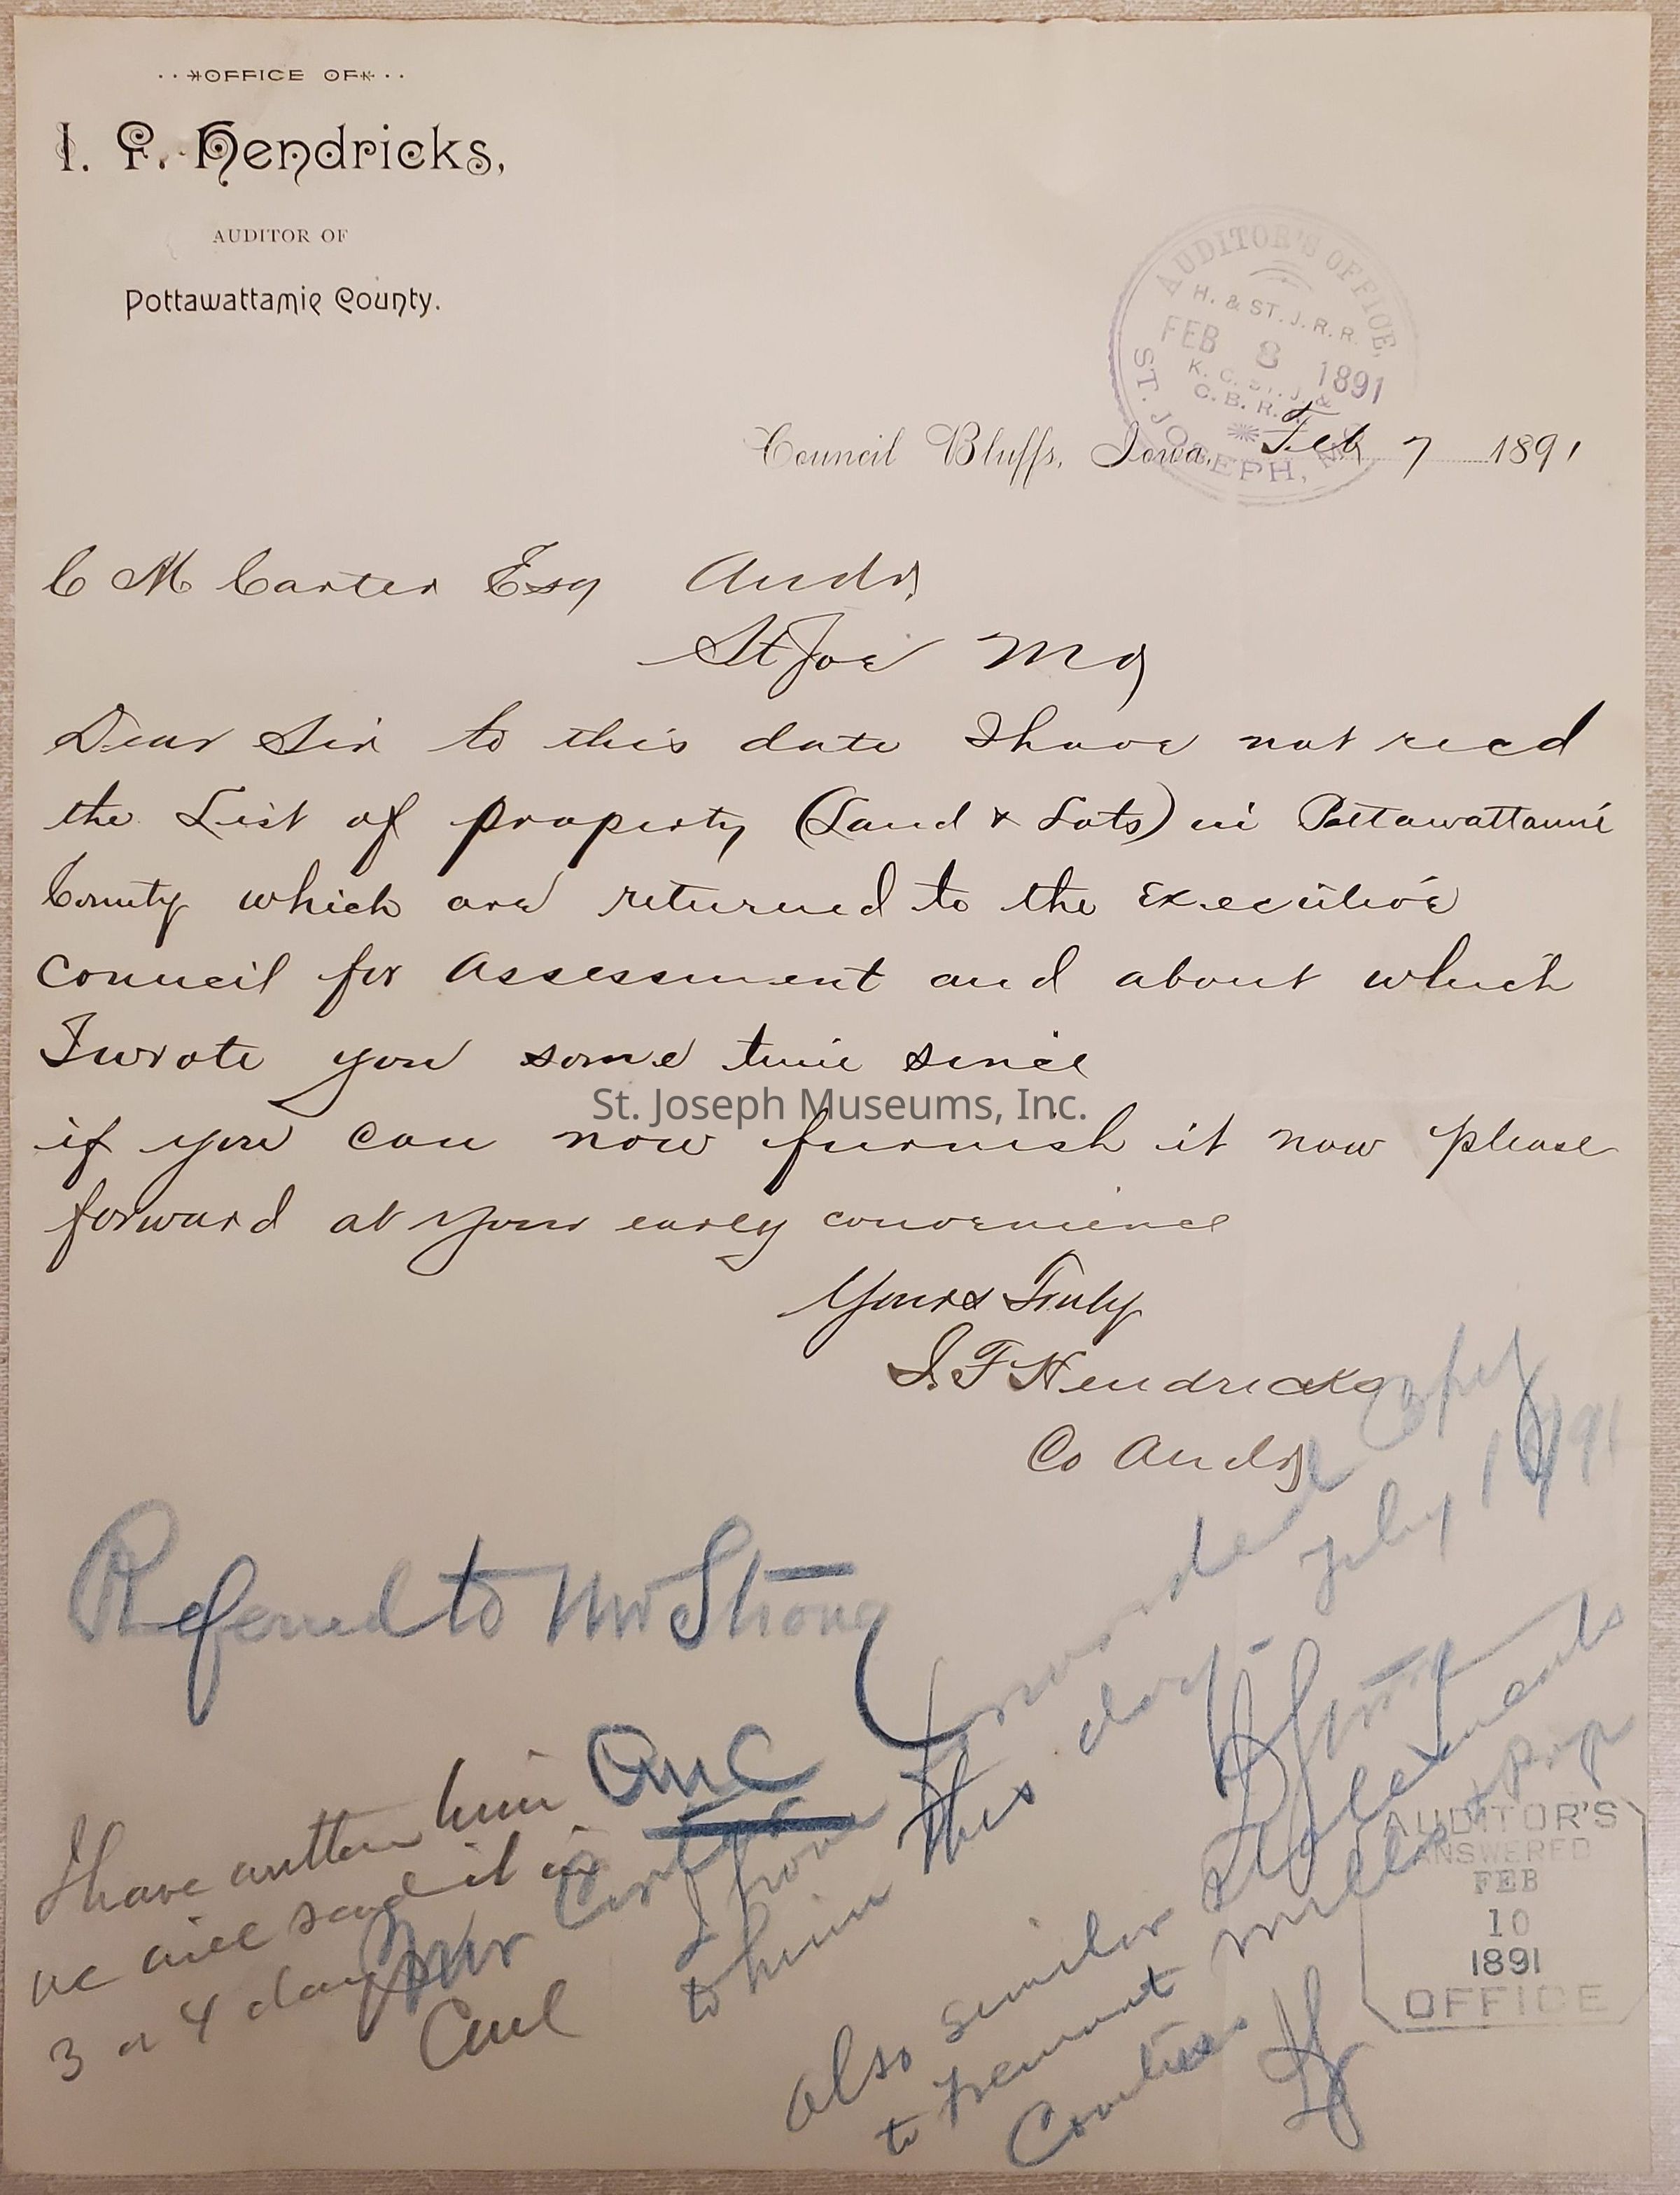 OFFICE OF
I. F. Hendricks,
AUDITOR OF
Pottawattamie County.
AUDITOR'S OFFICE,
H. & ST. J. R. R.
FEB 8 1891
K. C. ST. J. &
C. B. R. R.
ST. JOSEPH, MO
Council Bluffs, Iowa, Feb 7 1891
C M Carter Esq Audr
St Joe Mo
Dear Sir to this date I have not recd
the List of property (Land & Lots) in Pottawattamie
County which are returned to the Executive
Council for Assessment and about which
I wrote you some time since
St. Joseph Museums, Inc.
if you can now furnish it now please
forward at your early convenience
Yours Truly
I. F Hendricks
Co Audr
Referred to Mr Strong
CMC
I have written him
we will send it in
3 or 4 days
Mr Carter
I have
forwarded Copy
to him this day
July 1891
also similar Statements
to Fremont Mills & Page
Counties
AUDITOR'S
ANSWERED
FEB
10
1891
OFFICE